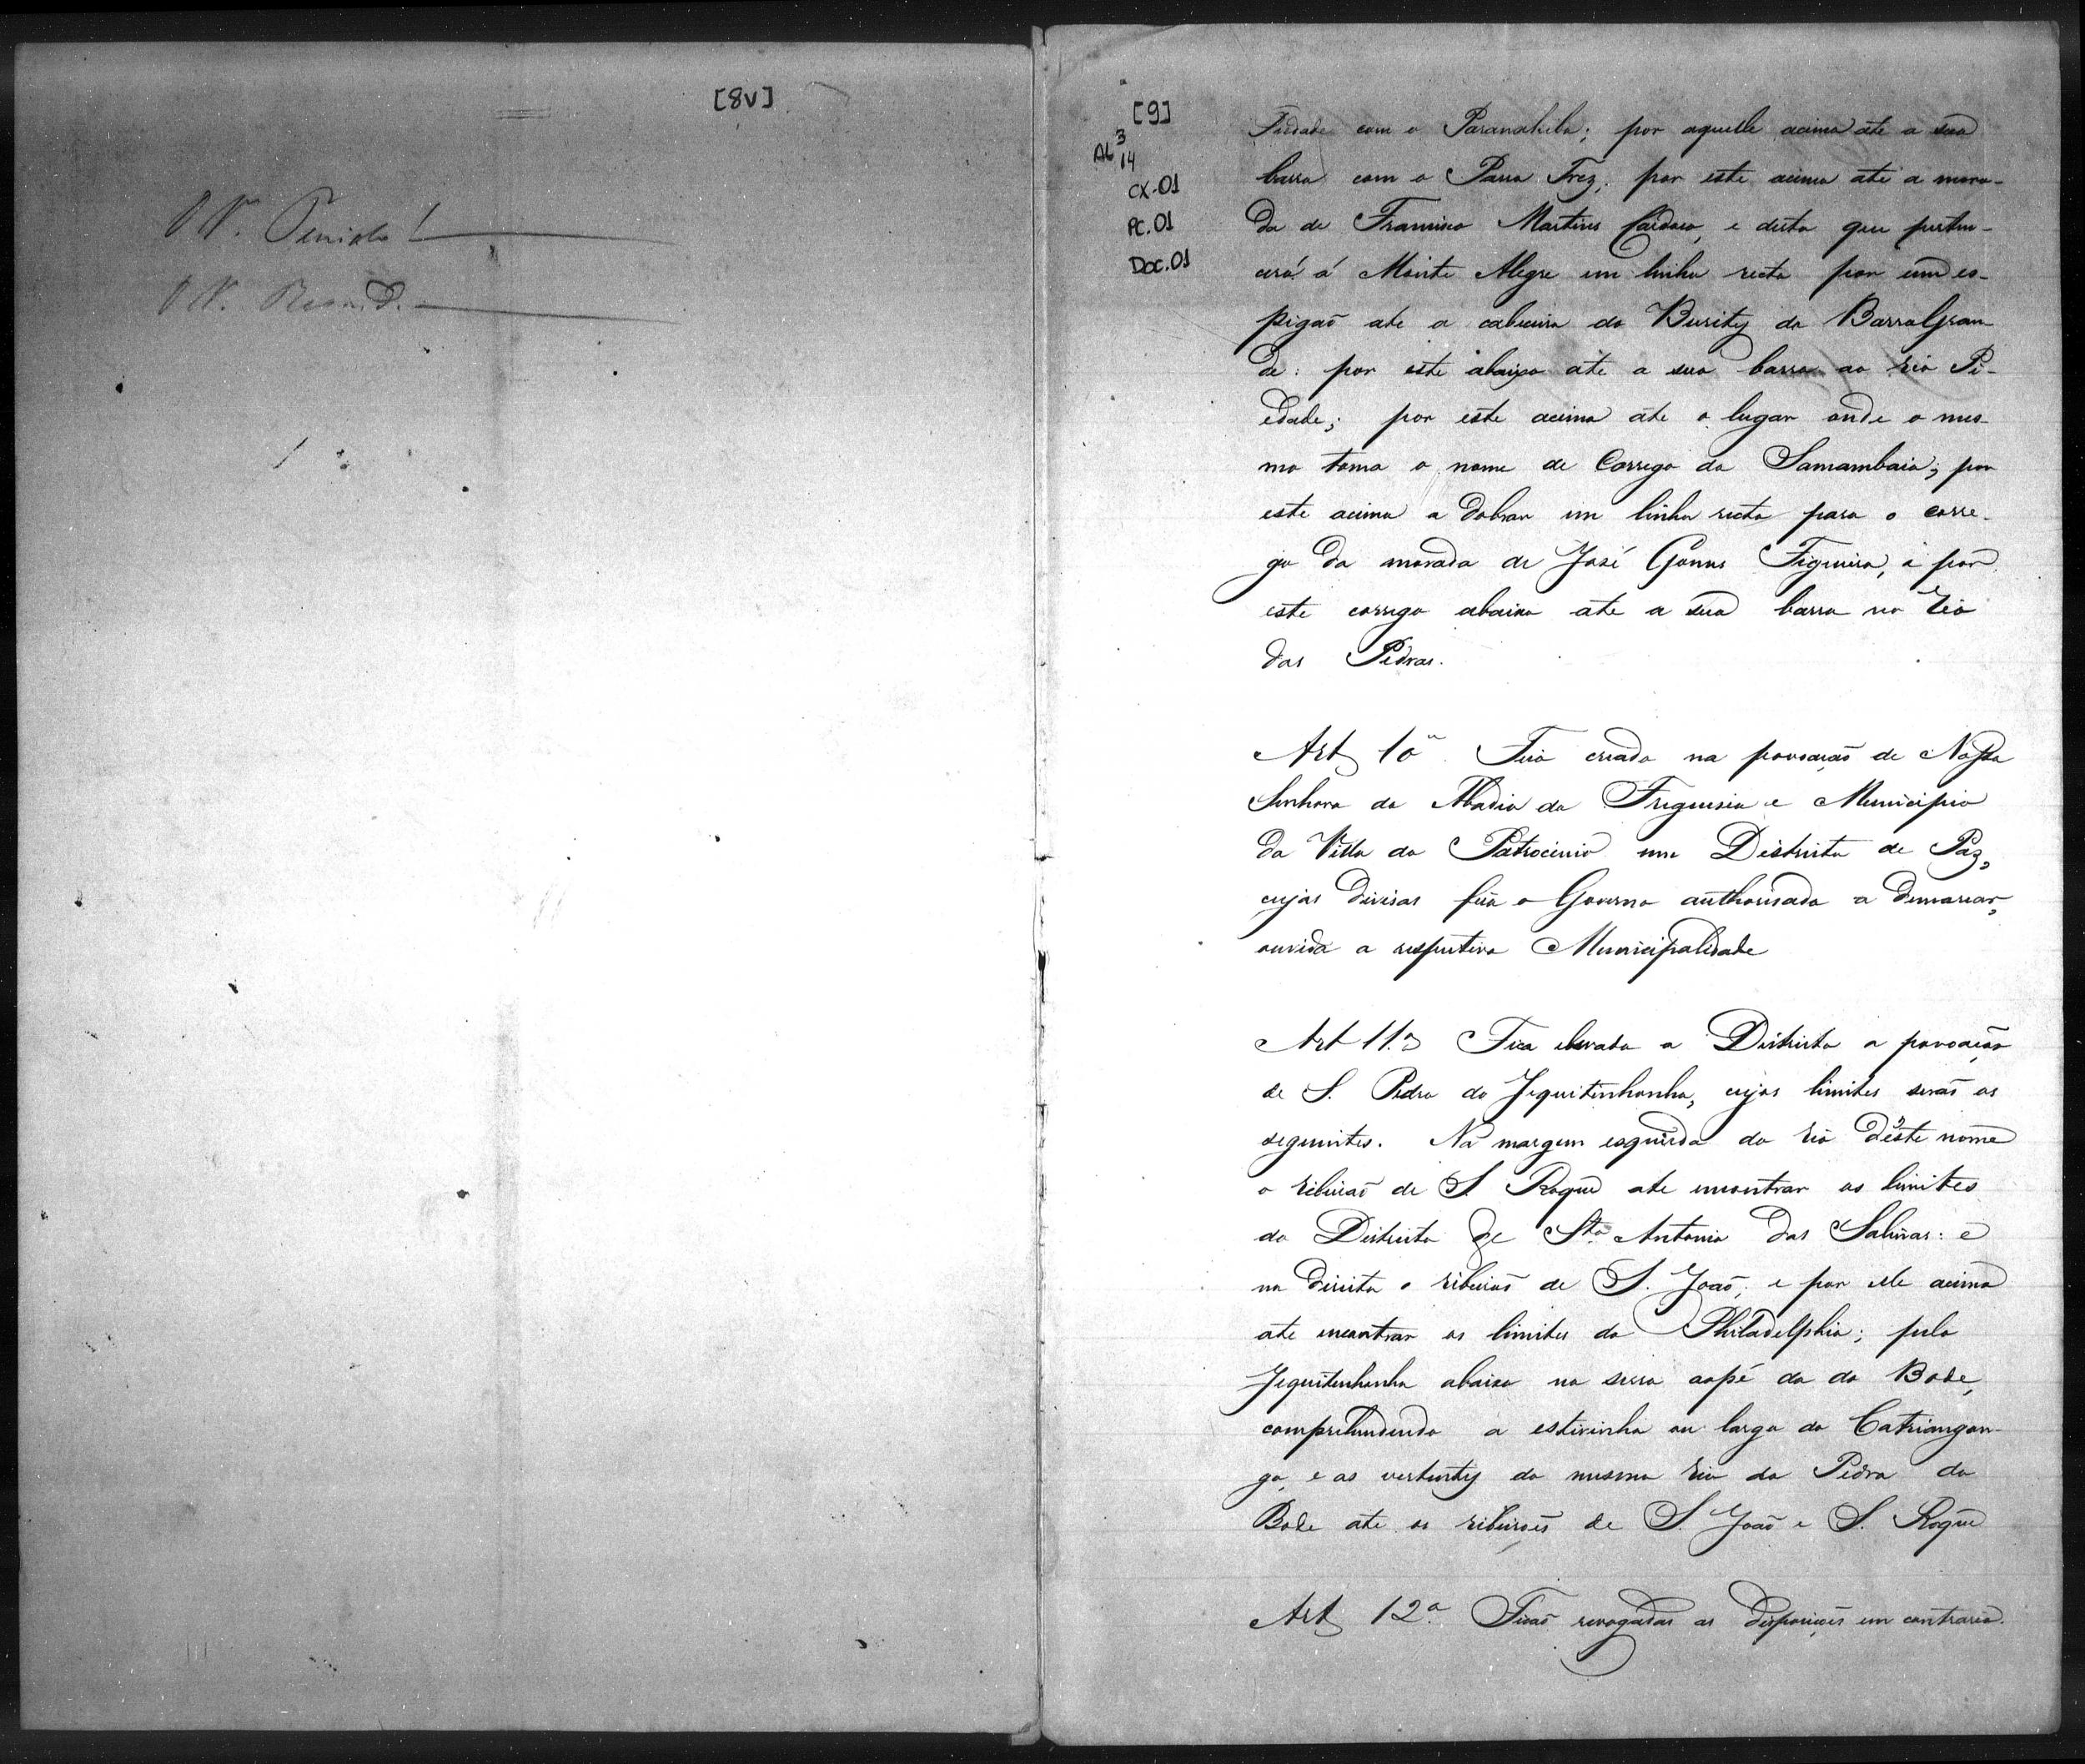 [8v]
[9]
AL 3
14
CX-01
PC.01
Doc.01
Piedade com o Paranahiba; por aquelle acima até a sua
barra com o Passa Trez; por este acima até a mora-
da de Francisco Martins Cardoso, e desta que perten-
cerá á Monte Alegre em linha recta por um es-
pigaõ ate a cabeceira do Burity da Barra Gran
de: por este abaixo até a sua barra ao rio Pi-
edade; por este acima até o lugar onde o mes-
mo toma o nome de Corrego da Samambaia; por
este acima a dobrar em linha recta para o corre-
go da morada de José Gomes Figueira, e por
este corrego abaixo ate a sua barra no rio
das Pedras.
Art 10º Fica creado na povoaçaõ de Nossa
Senhora da Abadia da Freguesia e Municipio
da Villa do Patrocinio um Districto de Paz,
cujas divisas fica o Governo authorisado a demarcar,
ouvida a respectiva Municipalidade
Art 11.º Fica elevada a Districto a povoaçaõ
de S. Pedro do Jequitinhonha, cujos limites seraõ os
seguintes. Na margem esquerda do rio deste nome
o ribeiraõ de S. Roque ate encontrar os limites
do Districto de Sto Antonio das Salinas: e
na direita o ribeiraõ de S. Joaõ; e por elle acima
ate encontrar os limites da Philadelphia; pelo
Jequitinhonha abaixo na serra aopé da do Bode,
comprehendendo a estivinha ou largo do Catriangon-
go, e as vertentes do mesmo rio da Pedra do
Bode até os ribeirões de S. Joaõ e S. Roque
Art 12º. Ficaõ revogadas as disposições em contrario.